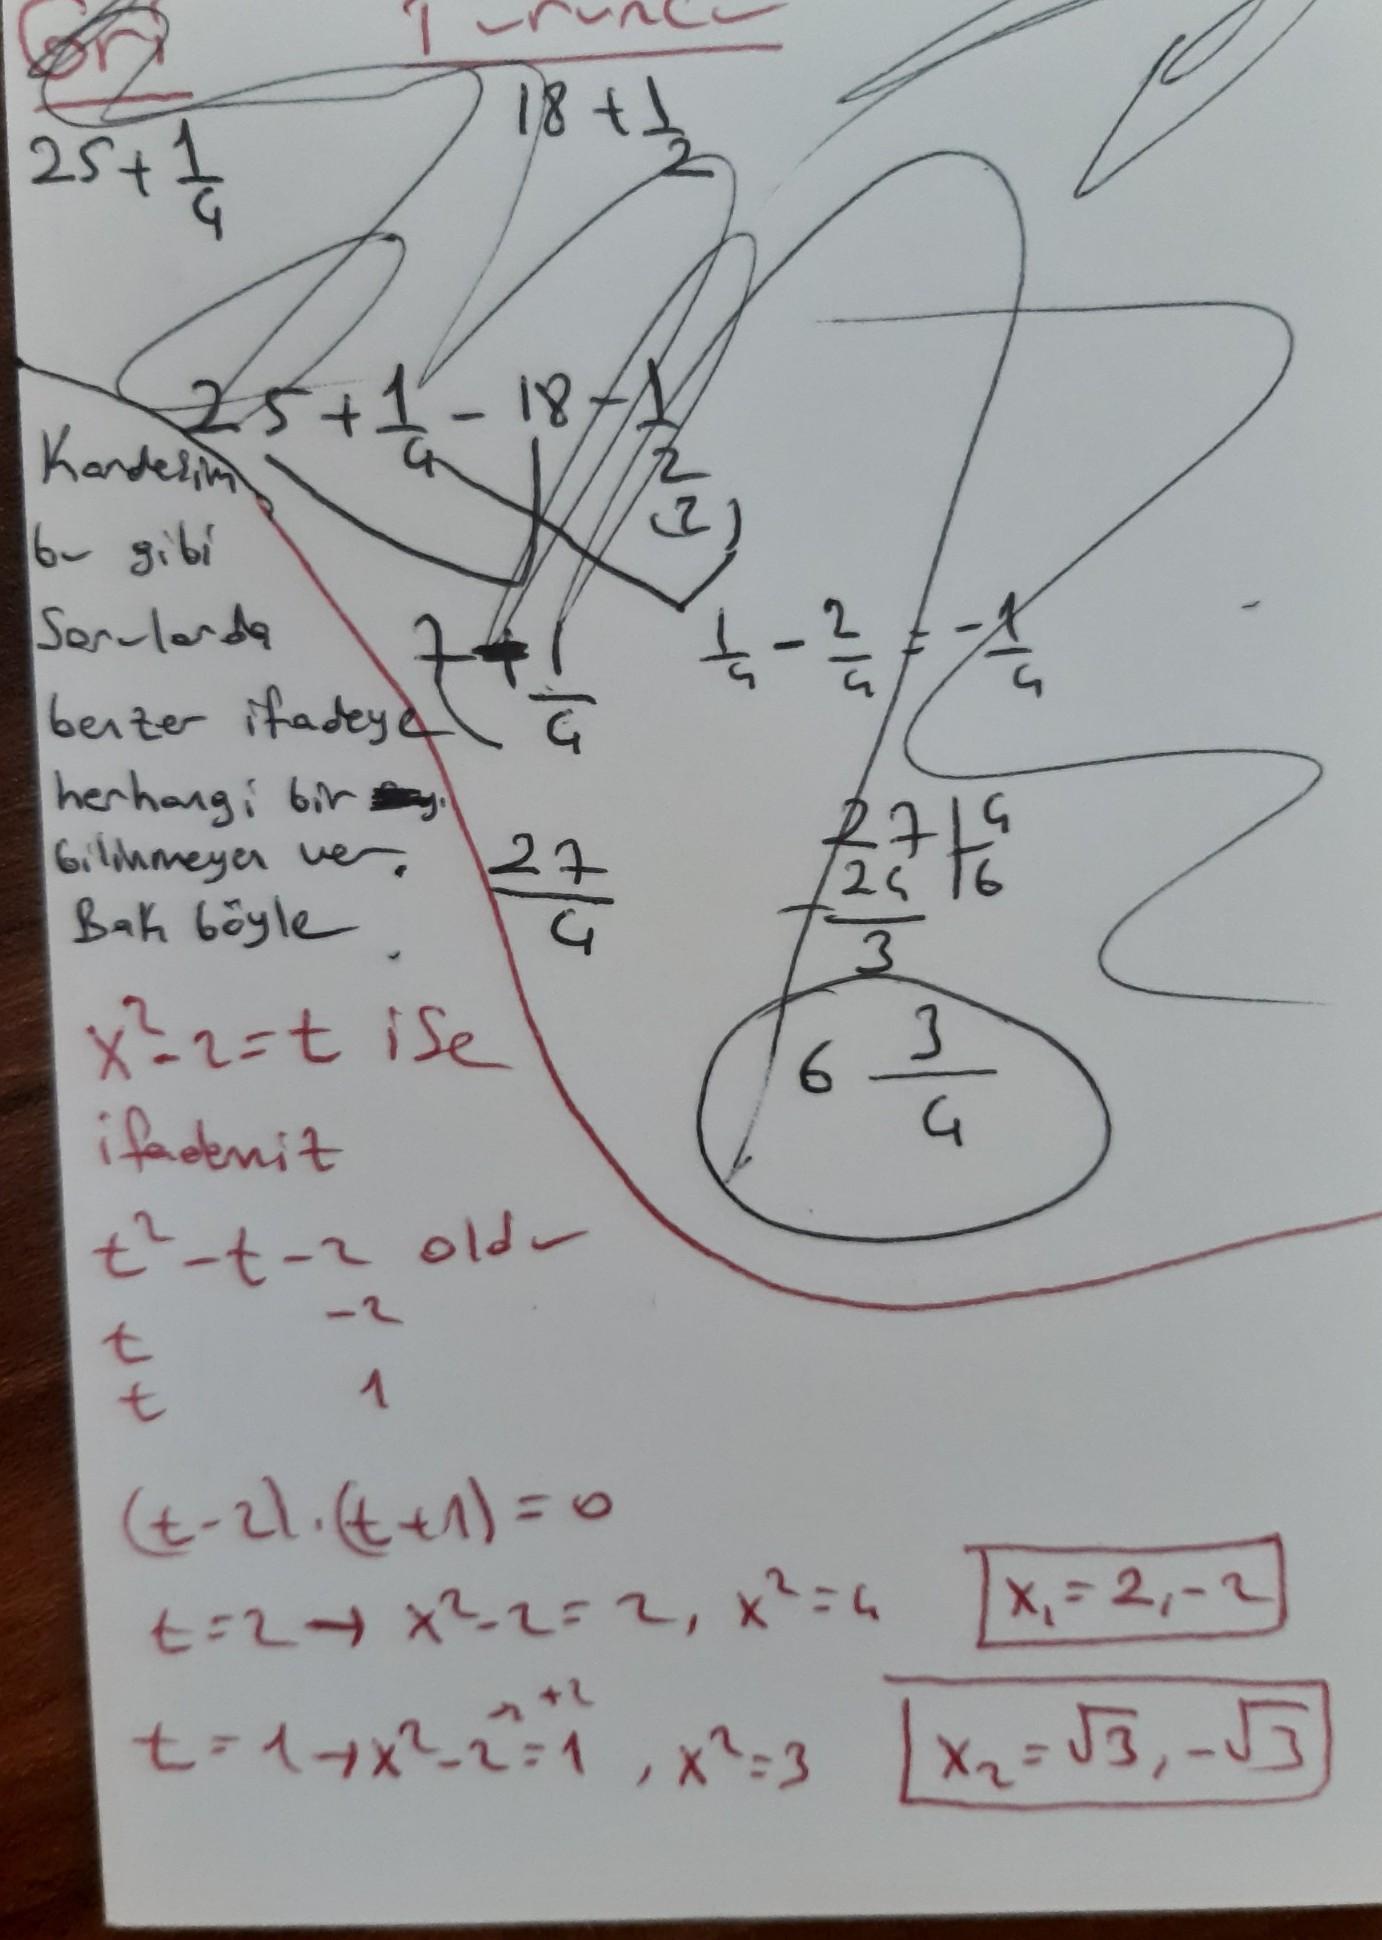 Gri Turuncu
25 + 1/4
18 + 1/2
25 + 1/4 - 18 - 1/2
(2)
7 + 1/4
1/4 - 2/4 = -1/4
27/4
27 | 4
- 24 | 6
3
6 3/4
Kardeşim
bu gibi
Sorularda
benzer ifadeye
herhangi bir
bilinmeyen ver.
Bak böyle
x² - 2 = t ise
ifademiz
t² - t - 2 oldu
t -2
t 1
(t-2).(t+1) = 0
t = 2 → x² - 2 = 2, x² = 4 x₁ = 2, -2
+2
t = 1 → x² - 2 = 1, x² = 3 x₂ = √3, -√3